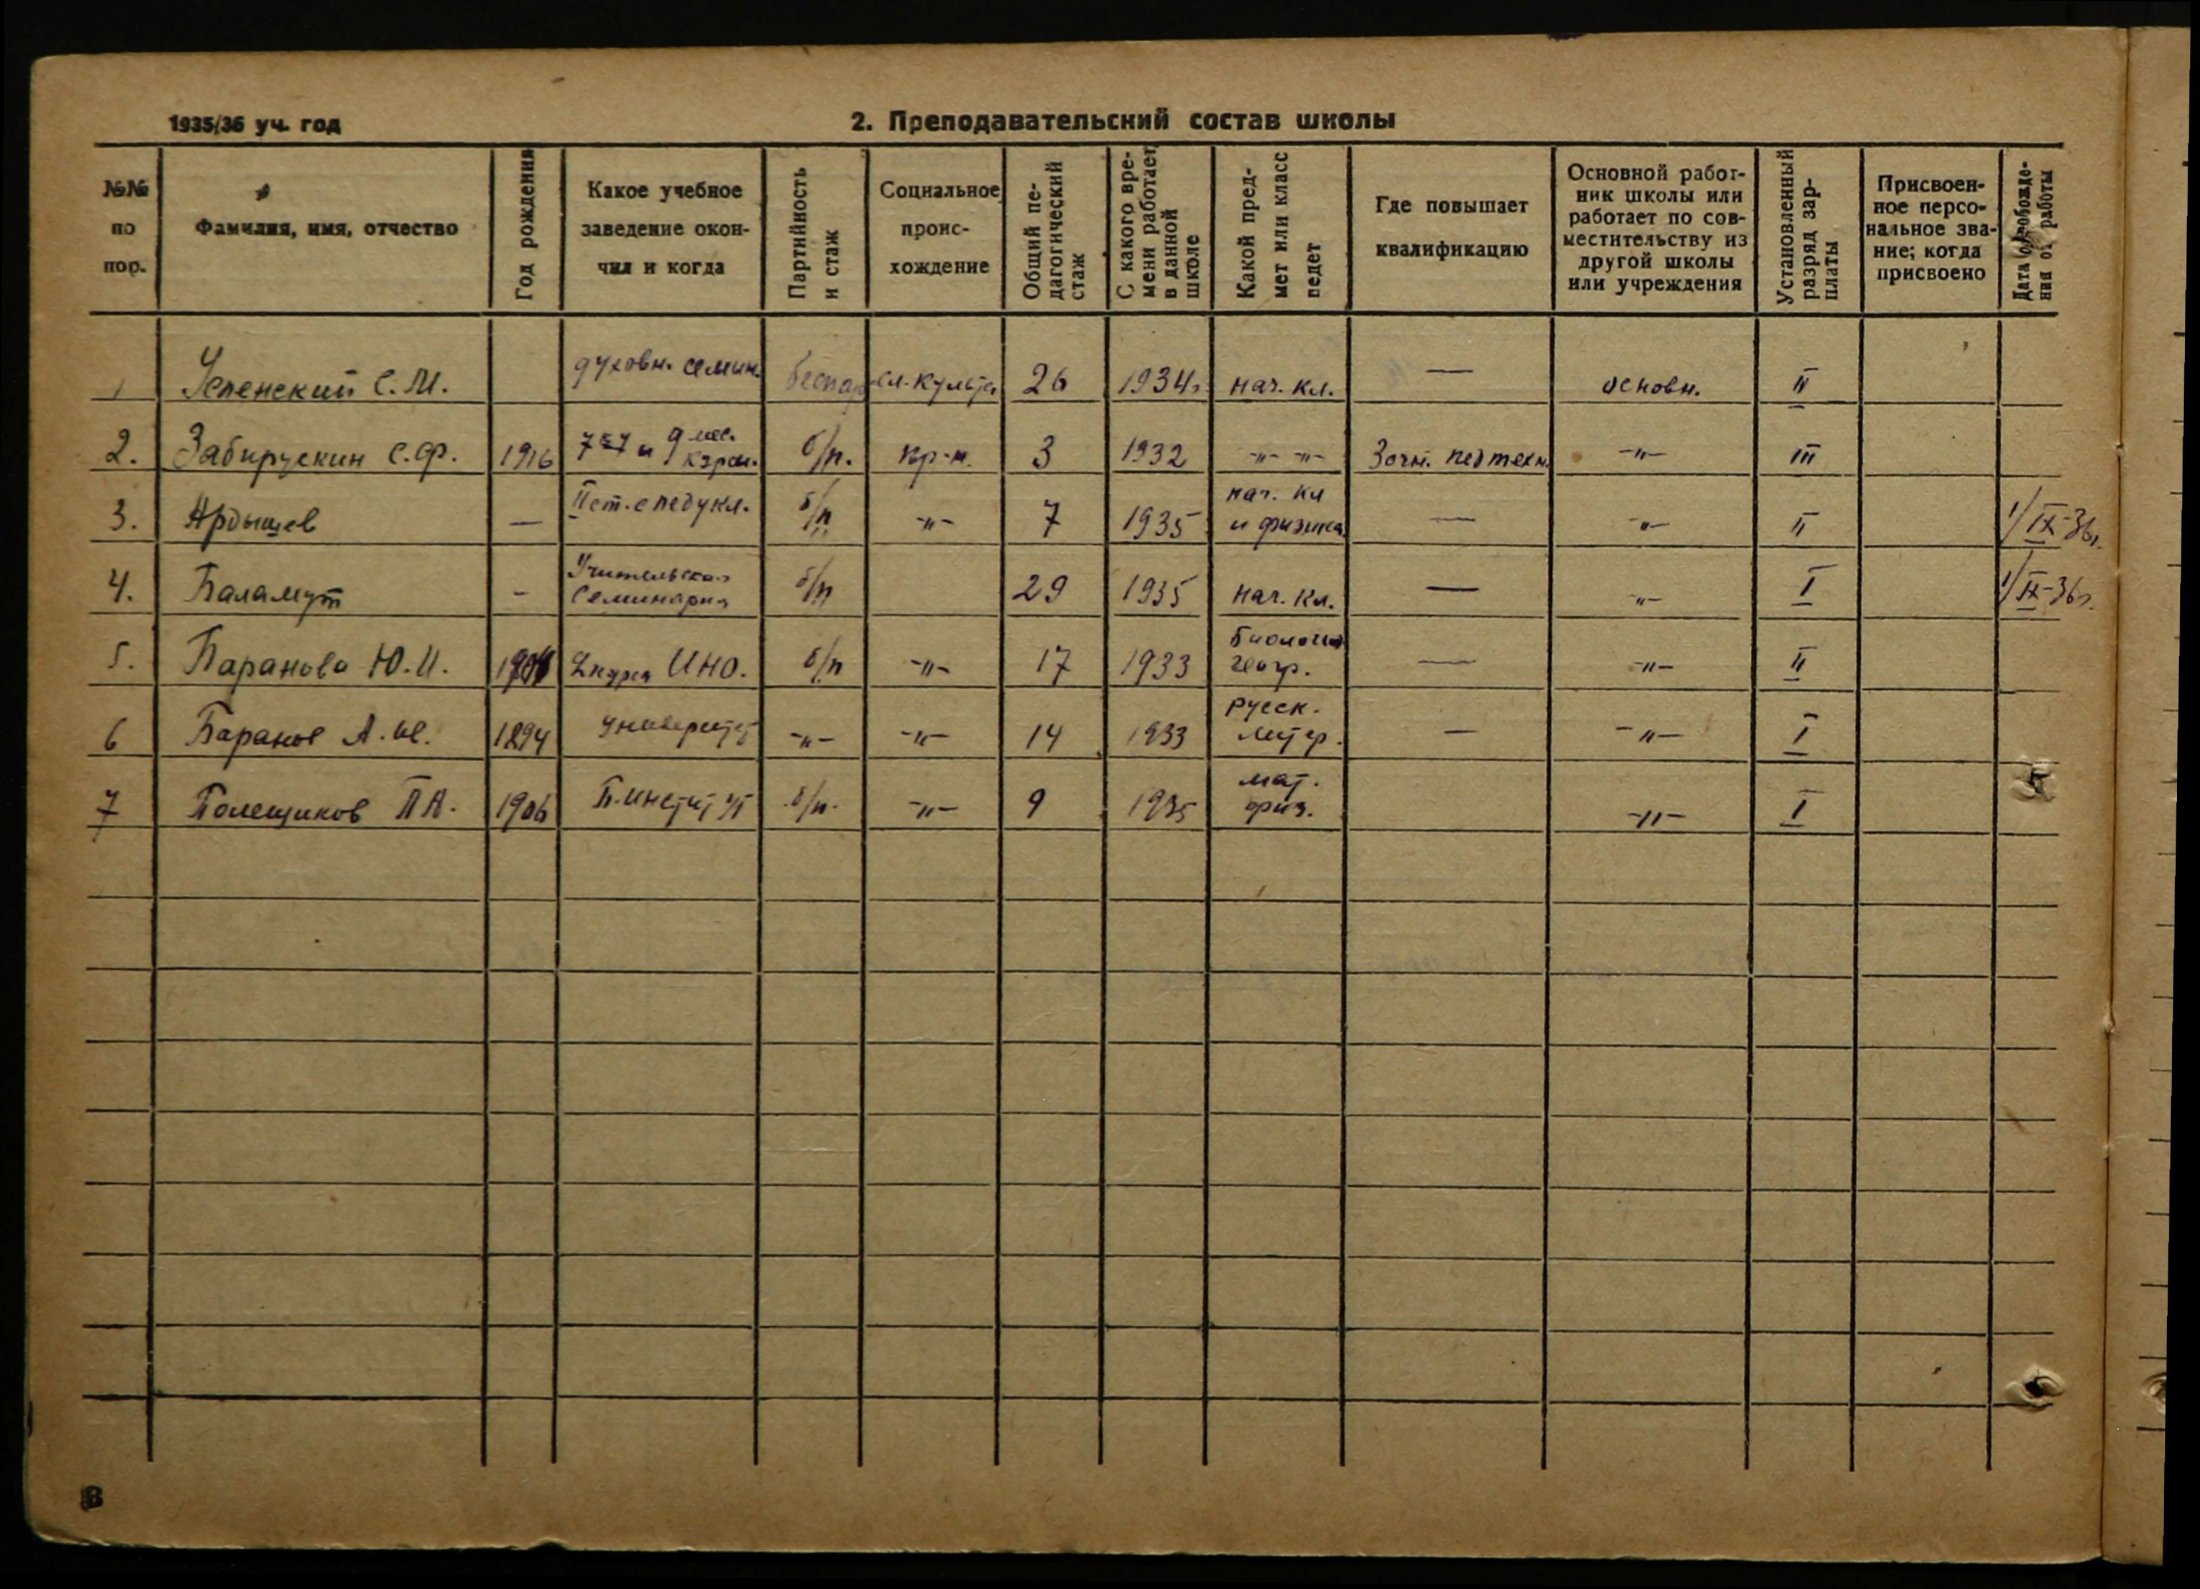 1935/36 уч. год
2. Преподавательский состав школы
№№ по пор.
Фамилия, имя, отчество
Год рождения
Какое учебное заведение окончил и когда
Партийность и стаж
Социальное происхождение
Общий педагогический стаж
С какого времени работает в данной школе
Какой предмет или класс ведет
Где повышает квалификацию
Основной работник школы или работает по совместительству из другой школы или учреждения
Установленный разряд зарплаты
Присвоенное персональное звание; когда присвоено
Дата освобождения от работы
1 Успенский С.М. духовн. семин. беспар сл. культа 26 1934г. нач. кл. — основн. II
2. Забирускин С.Ф. 1916 7 и 9 мес. б/п. кр-н. 3 1932 -"- -"- Заочн. педтехн. -"- III
3. Ардышев — б/п -"- 7 1935 нач. кл и физика — -"- II 1/IX-36г.
4. Баламут - Учительская семинария б/п 29 1935 нач. кл. — -"- I 1/IX-36г.
5. Баранова Ю.И. 2 курса ИНО. б/п -"- 17 1933 Биология геогр. — -"- II
6 Баранов А. 1894 университет -"- -"- 14 1933 русск. литер. — -"- I
7 Полещиков П.А. 1906 П.институт б/п. -"- 9 1935 мат. физ. -"- I
8